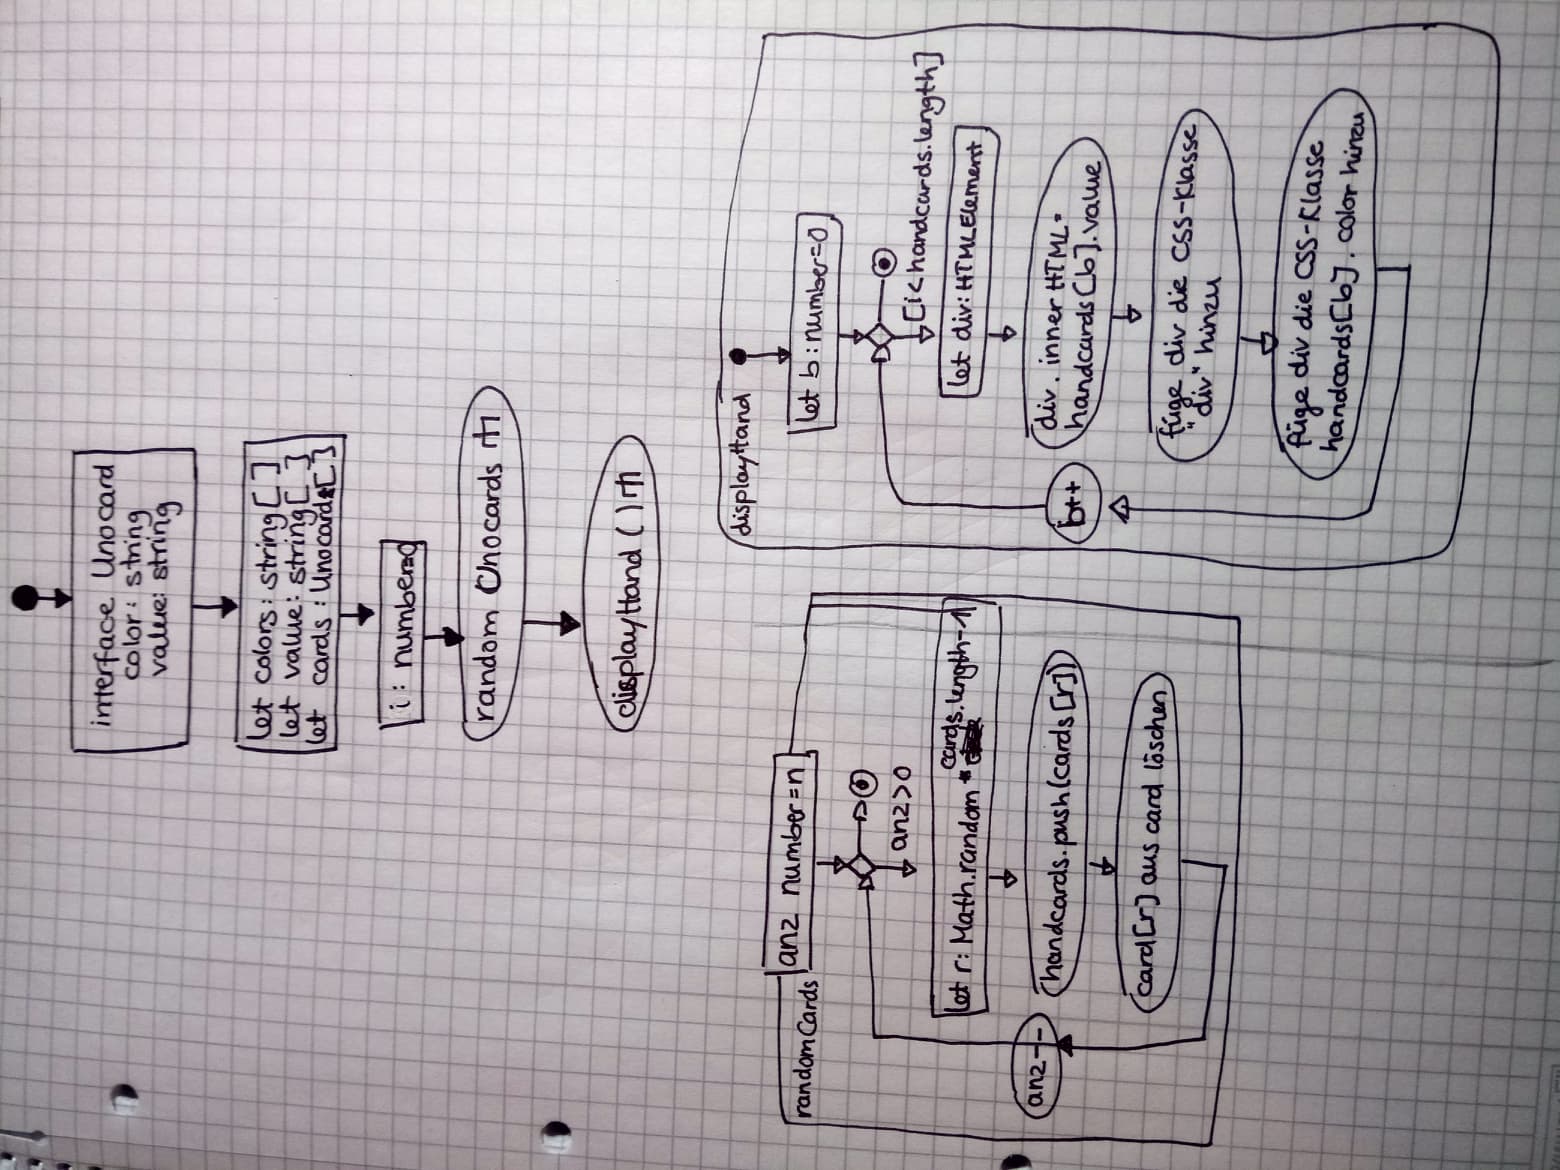 interface Unocard
color: string
value: string
let colors: string[ ]
let value: string[ ]
let cards: Unocard[ ]
i: number=0
random Unocards
displayHand ( )
randomCards
anz number=n
anz>0
let r: Math.random * cards.length-1
handcards.push(cards[r])
card[r] aus card löschen
anz--
displayHand
let b: number=0
[i<handcards.length]
let div: HTMLElement
div. inner HTML=
handcards[b].value
füge div die CSS-Klasse
"div" hinzu
füge div die CSS-Klasse
handcards[b]. color hinzu
b++